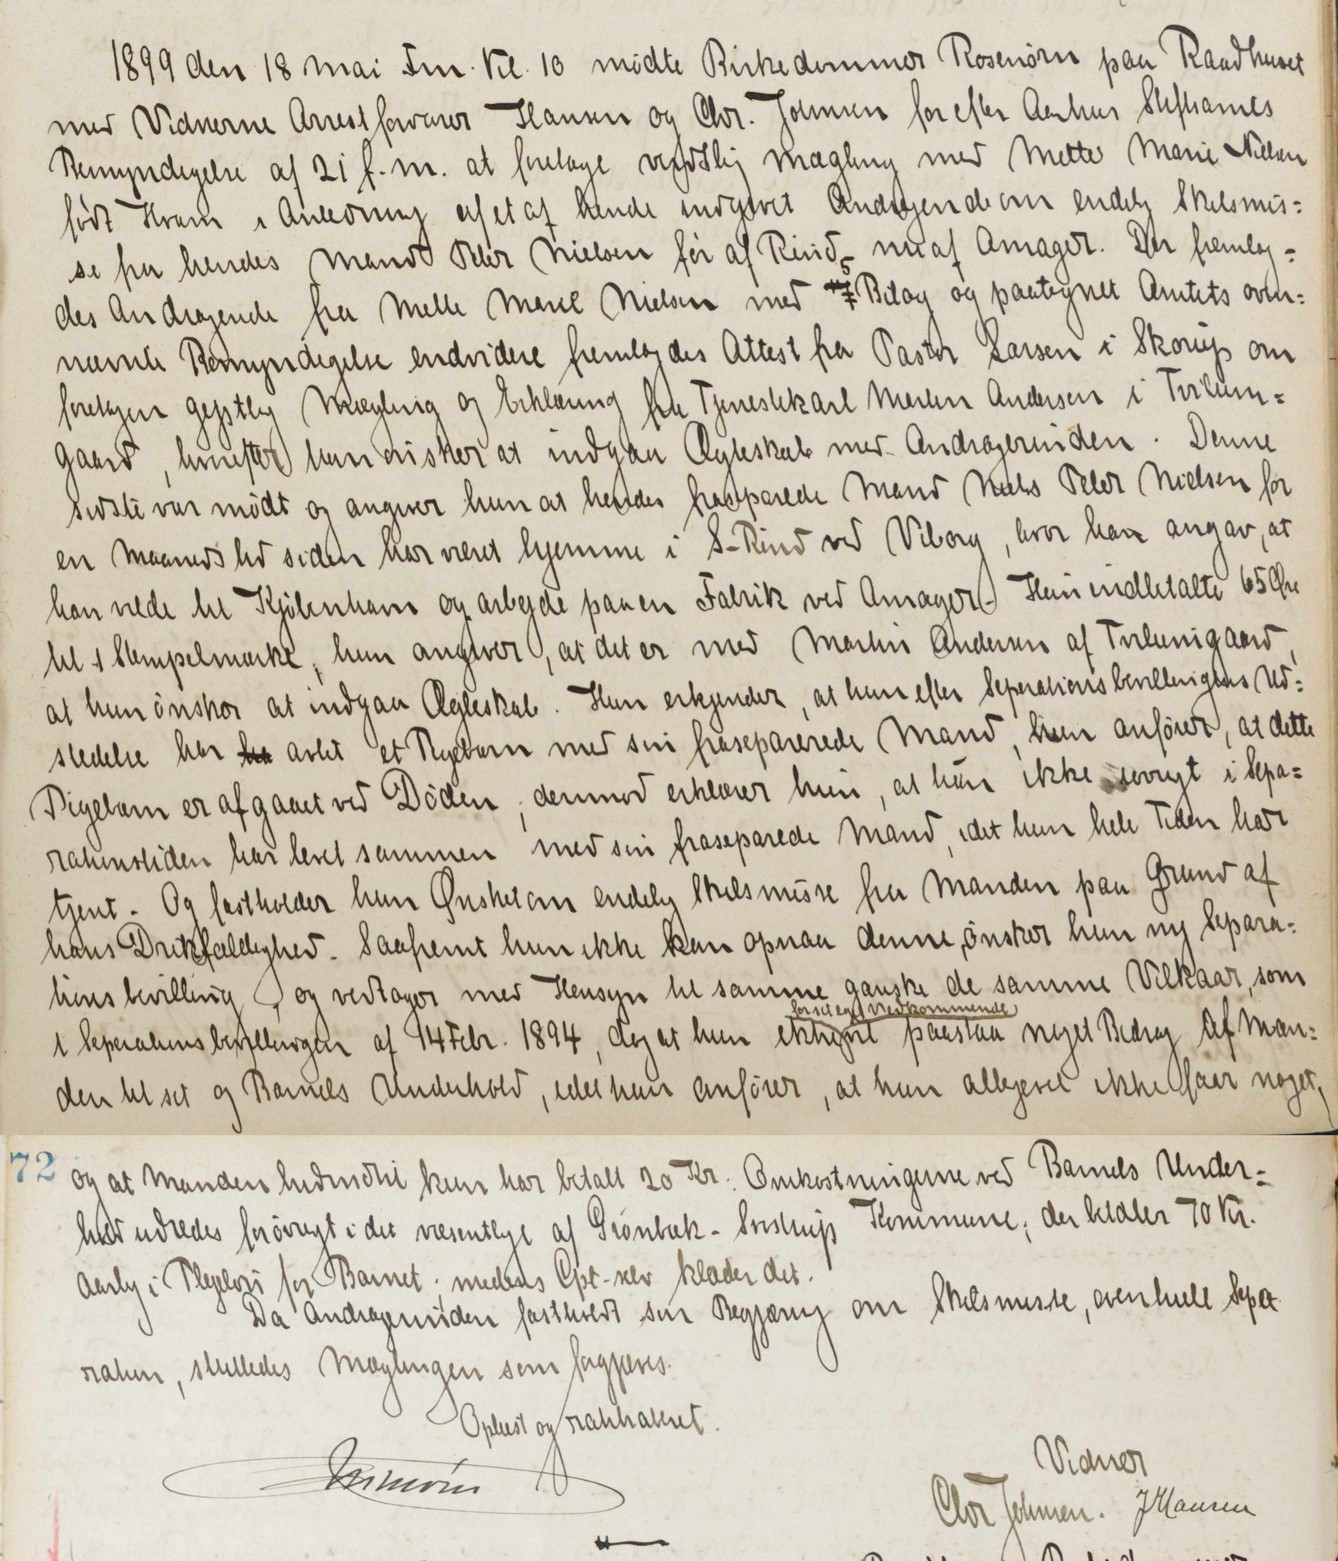 1899 den 18 Mai Fm. Kl. 10 mødte Birkedommer Rosenørn paa Raadhuset
med Vidnerne Arrestforvarer Hansen og Chr. Johnsen for efter Aarhus Stiftsamts
Bemyndigelse af 21 f.m. at foretage verdslig Mægling med Mette Marie Nielsen
født Kvam i Anledning af et af hende indgivet Andragende om endelig Skilsmis=
se fra hendes Mand Peter Nielsen før af Rind, nu af Amager. Der fremlag=
des Andragende fra Mette Marie Nielsen med 5 Bilag og paategnet Amtets oven=
nævnte Bemyndigelse endvidere fremlagdes Attest fra Pastor Larsen i Skorup om
foretagen gejstlig Mægling og Erklæring fra Tjenestekarl Martin Andersen i Tvilum=
gaard, hvorefter han ønsker at indgaa Ægteskab med Andragerinden. Denne
sidste var mødt og angiver hun at hendes fraseparede Mand Niels Peter Nielsen for
en Maaneds tid siden har været hjemme i S-Rind ved Viborg, hvor han angav, at
han vilde til Kjøbenhavn og arbejde paa en Fabrik ved Amager. Hun indbetalte 65 Øre
til 1 Stempelmærke, hun angiver, at det er med Martin Andersen af Tvilumgaard,
at hun ønsker at indgaa Ægteskab. Hun erkjender, at hun efter Seperationsbevillingens Ud=
stedelse har avlet et Pigebarn med sin fraseparerede Mand, hun anfører, at dette
Pigebarn er afgaaet ved Døden; derimod erklærer hun, at hun ikke iøvrigt i Sepa=
rationstiden har levet sammen med sin fraseparede Mand, idet hun hele Tiden har
tjent. Og fastholder hun Ønsket om endelig Skilsmisse fra Manden paa Grund af
hans Drikfældighed. Saafremt hun ikke kan opnaa denne, ønsker hun ny Separa=
tionsbevilling, og vedtager med Hensyn til samme ganske de samme Vilkaar, som
i Seperationsbevillingen af 14 Febr. 1894, dog at hun
for sit eget Vedkommende
ikke paastaa noget Bidrag af Man=
den til sit og Barnets Underhold, idet hun anfører, at hun alligevel ikke faar noget,
72 og at Manden hidindtil kun har betalt 20 Kr. Omkostningerne ved Barnets Under=
hold udredes forøvrigt i det væsentlige af Grønbæk-Svostrup Kommune, der betaler 70 Kr.
aarlig i Plejeløn for Barnet, medens Cpt. selv klæder det.
Da Andragerinden fastholdt sin Begjæring om Skilsmisse, eventuelt Sepa
ration, sluttedes Mæglingen som forgjæves.
Oplæst og ratihaberet.
Rosenørn
Vidner
Chr Johnsen. J Hansen